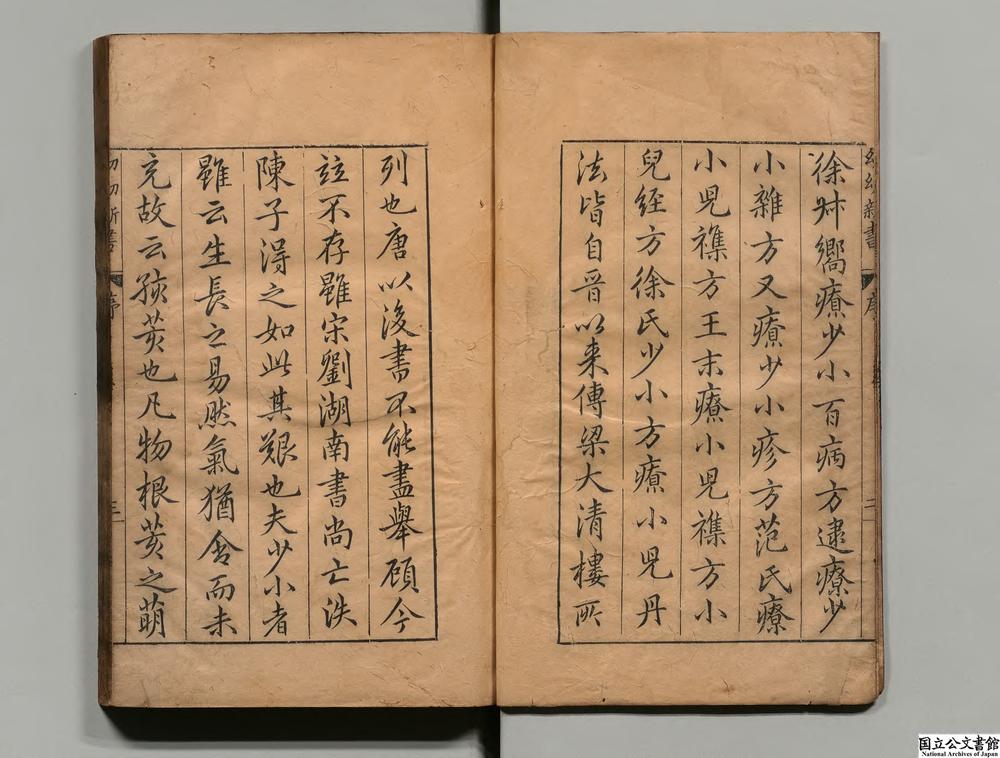 幼幼新書
序
二
徐叔嚮療少小百病方逮療少
小雜方又療少小疹方范氏療
小児襍方王末療小児襍方小
兒經方徐氏少小方療小児丹
法皆自晉以来傳梁大清樓所
列也唐以後書不能盡舉顧今
竝不存雖宋劉湖南書尚亡泆
陳子得之如此其艱也夫少小者
雖云生長之易然氣猶含而未
充故云孩荄也凡物根荄之萌
幼幼新書
序
三
国立公文書館
National Archives of Japan